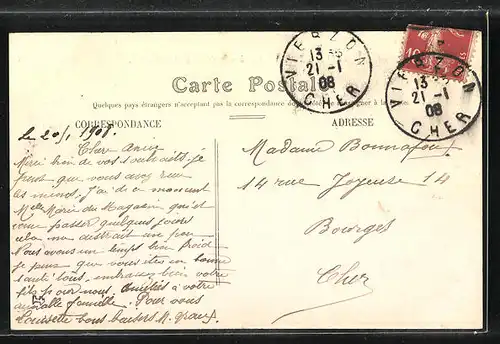 VIERZON
13
21 - 1
08
CHER
10
VIERZON
13
21 - 1
08
CHER
Carte Postale
Quelques pays étrangers n'acceptent pas la correspondance
CORRESPONDANCE
ADRESSE
le 20/1 1908.
Chers Amis
Merci bien de vos souhaits, je
que vous avez
J'ai de ce moment
Melle Marie du Magasin qui est
venue passer quelques jours
cela me distrait un peu
Nous avons un temps bien froid
je pense que vous êtes en bonne
santé tous, embrassez bien votre
fils pour nous, Amitiés à votre
aimable famille. Pour vous
bons baisers M.
Madame Bonnafoux
14 rue Joyeuse 14
Bourges
Cher